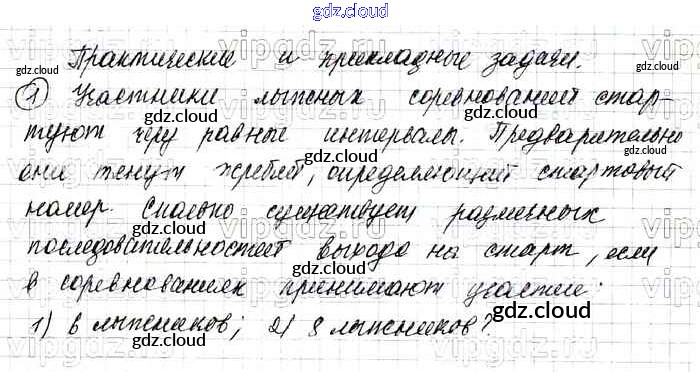 gdz.cloud
Практические и прикладные задачи.
1 Участники лыжных соревнований стар-
туют через равные интервалы. Предварительно
они тянут жребий, определяющий стартовый
номер. Сколько существует различных
последовательностей выхода на старт, если
в соревнованиях принимают участие:
1) 6 лыжников; 2) 8 лыжников?
gdz.cloud